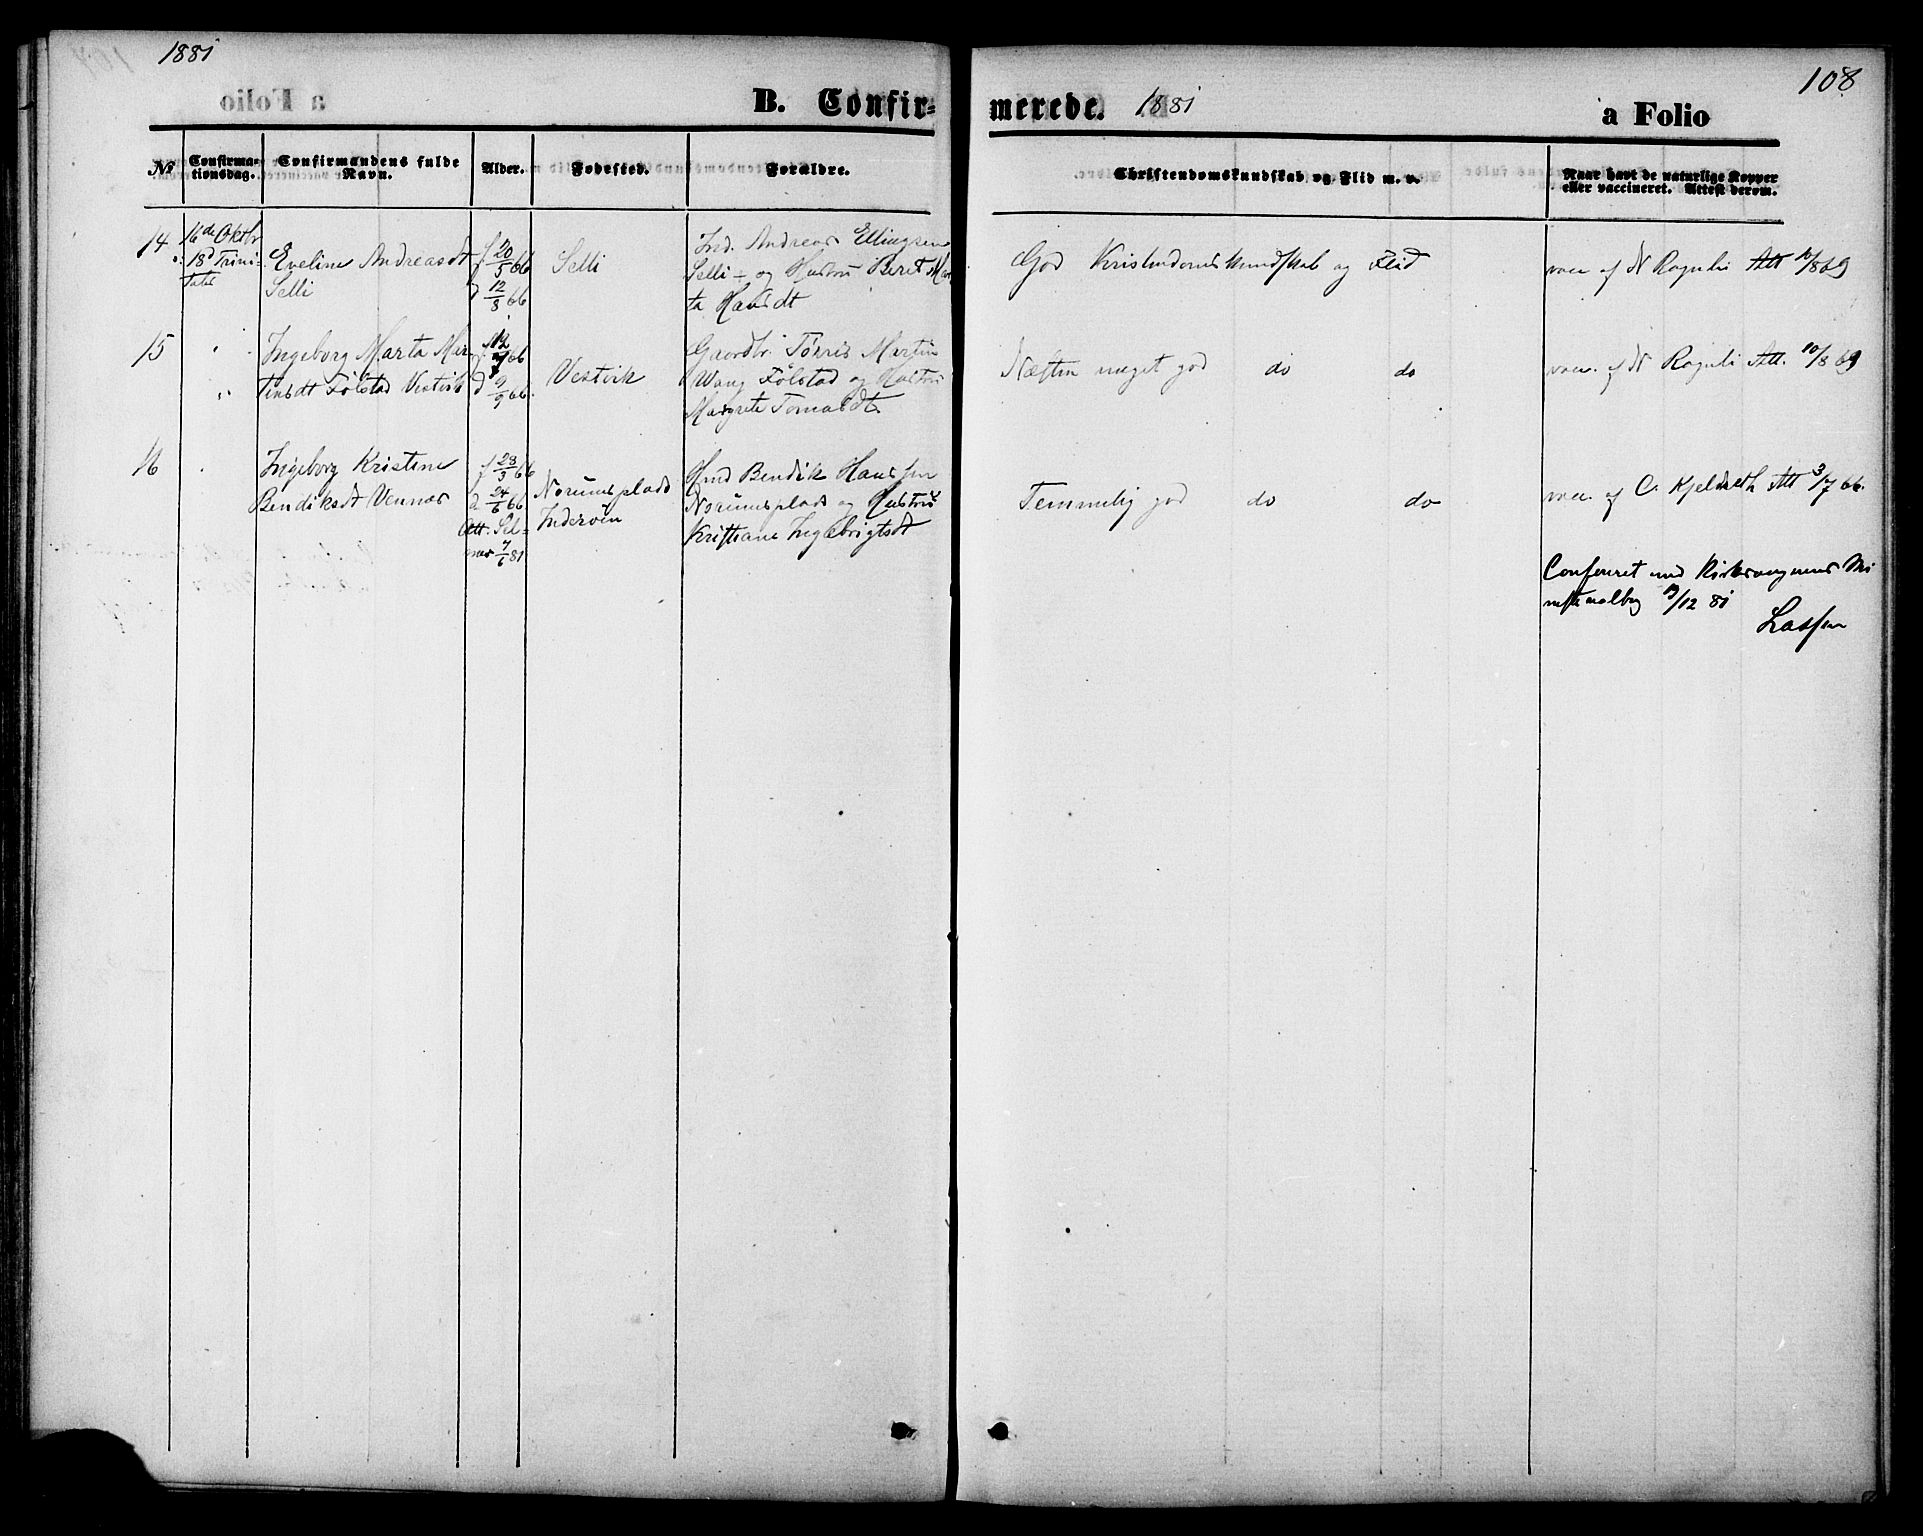 1881
108
B. Confirmerede. 1881
a Folio
No
Confirmationsdag.
Confirmandens fulde Navn.
Alder.
Fødested.
Forældre.
Christendomskundskab og Flid m. v.
Naar havt de naturlige Kopper eller vaccineret. Attest derom.
14
16de Oktbr
18d Trinitatis
Eveline Andreasdt
Selli
f 20/5 66
d 12/8 66
Selli
Ind. Andreas Ellingsen
Selli - og Hustru Beret Mar
ta Hansdt
God Kristendomskundskab og Flid
vacc af N Roguli Att 10/8 69
15
Ingeborg Marta Mar
tinsdt Følstad Vestvik
f 12/7 66
d 9/9 66.
Vestvik
Gaardbr. Tørris Martin
Wang Følstad og Hustru
Margrete Tomasdt
Næsten meget god do do
vacc. af N Roguli Att. 10/8 69
16
Ingeborg Kristine
Bendiksdt Vennes
f 28/3 66
d 24/6 66
Att. Sel-
mer 7/6 81
Norumsplads
Inderøen
Hmd Bendik Hanssen
Norumsplads og Hustru
Kristiane Ingebrigtsdt
Temmelig god do do
vacc. af C. Kjeldseth Att 3/7 66.
Confereret med Kirkesangerens Mi
nisterialbog 19/12 81
Lassen